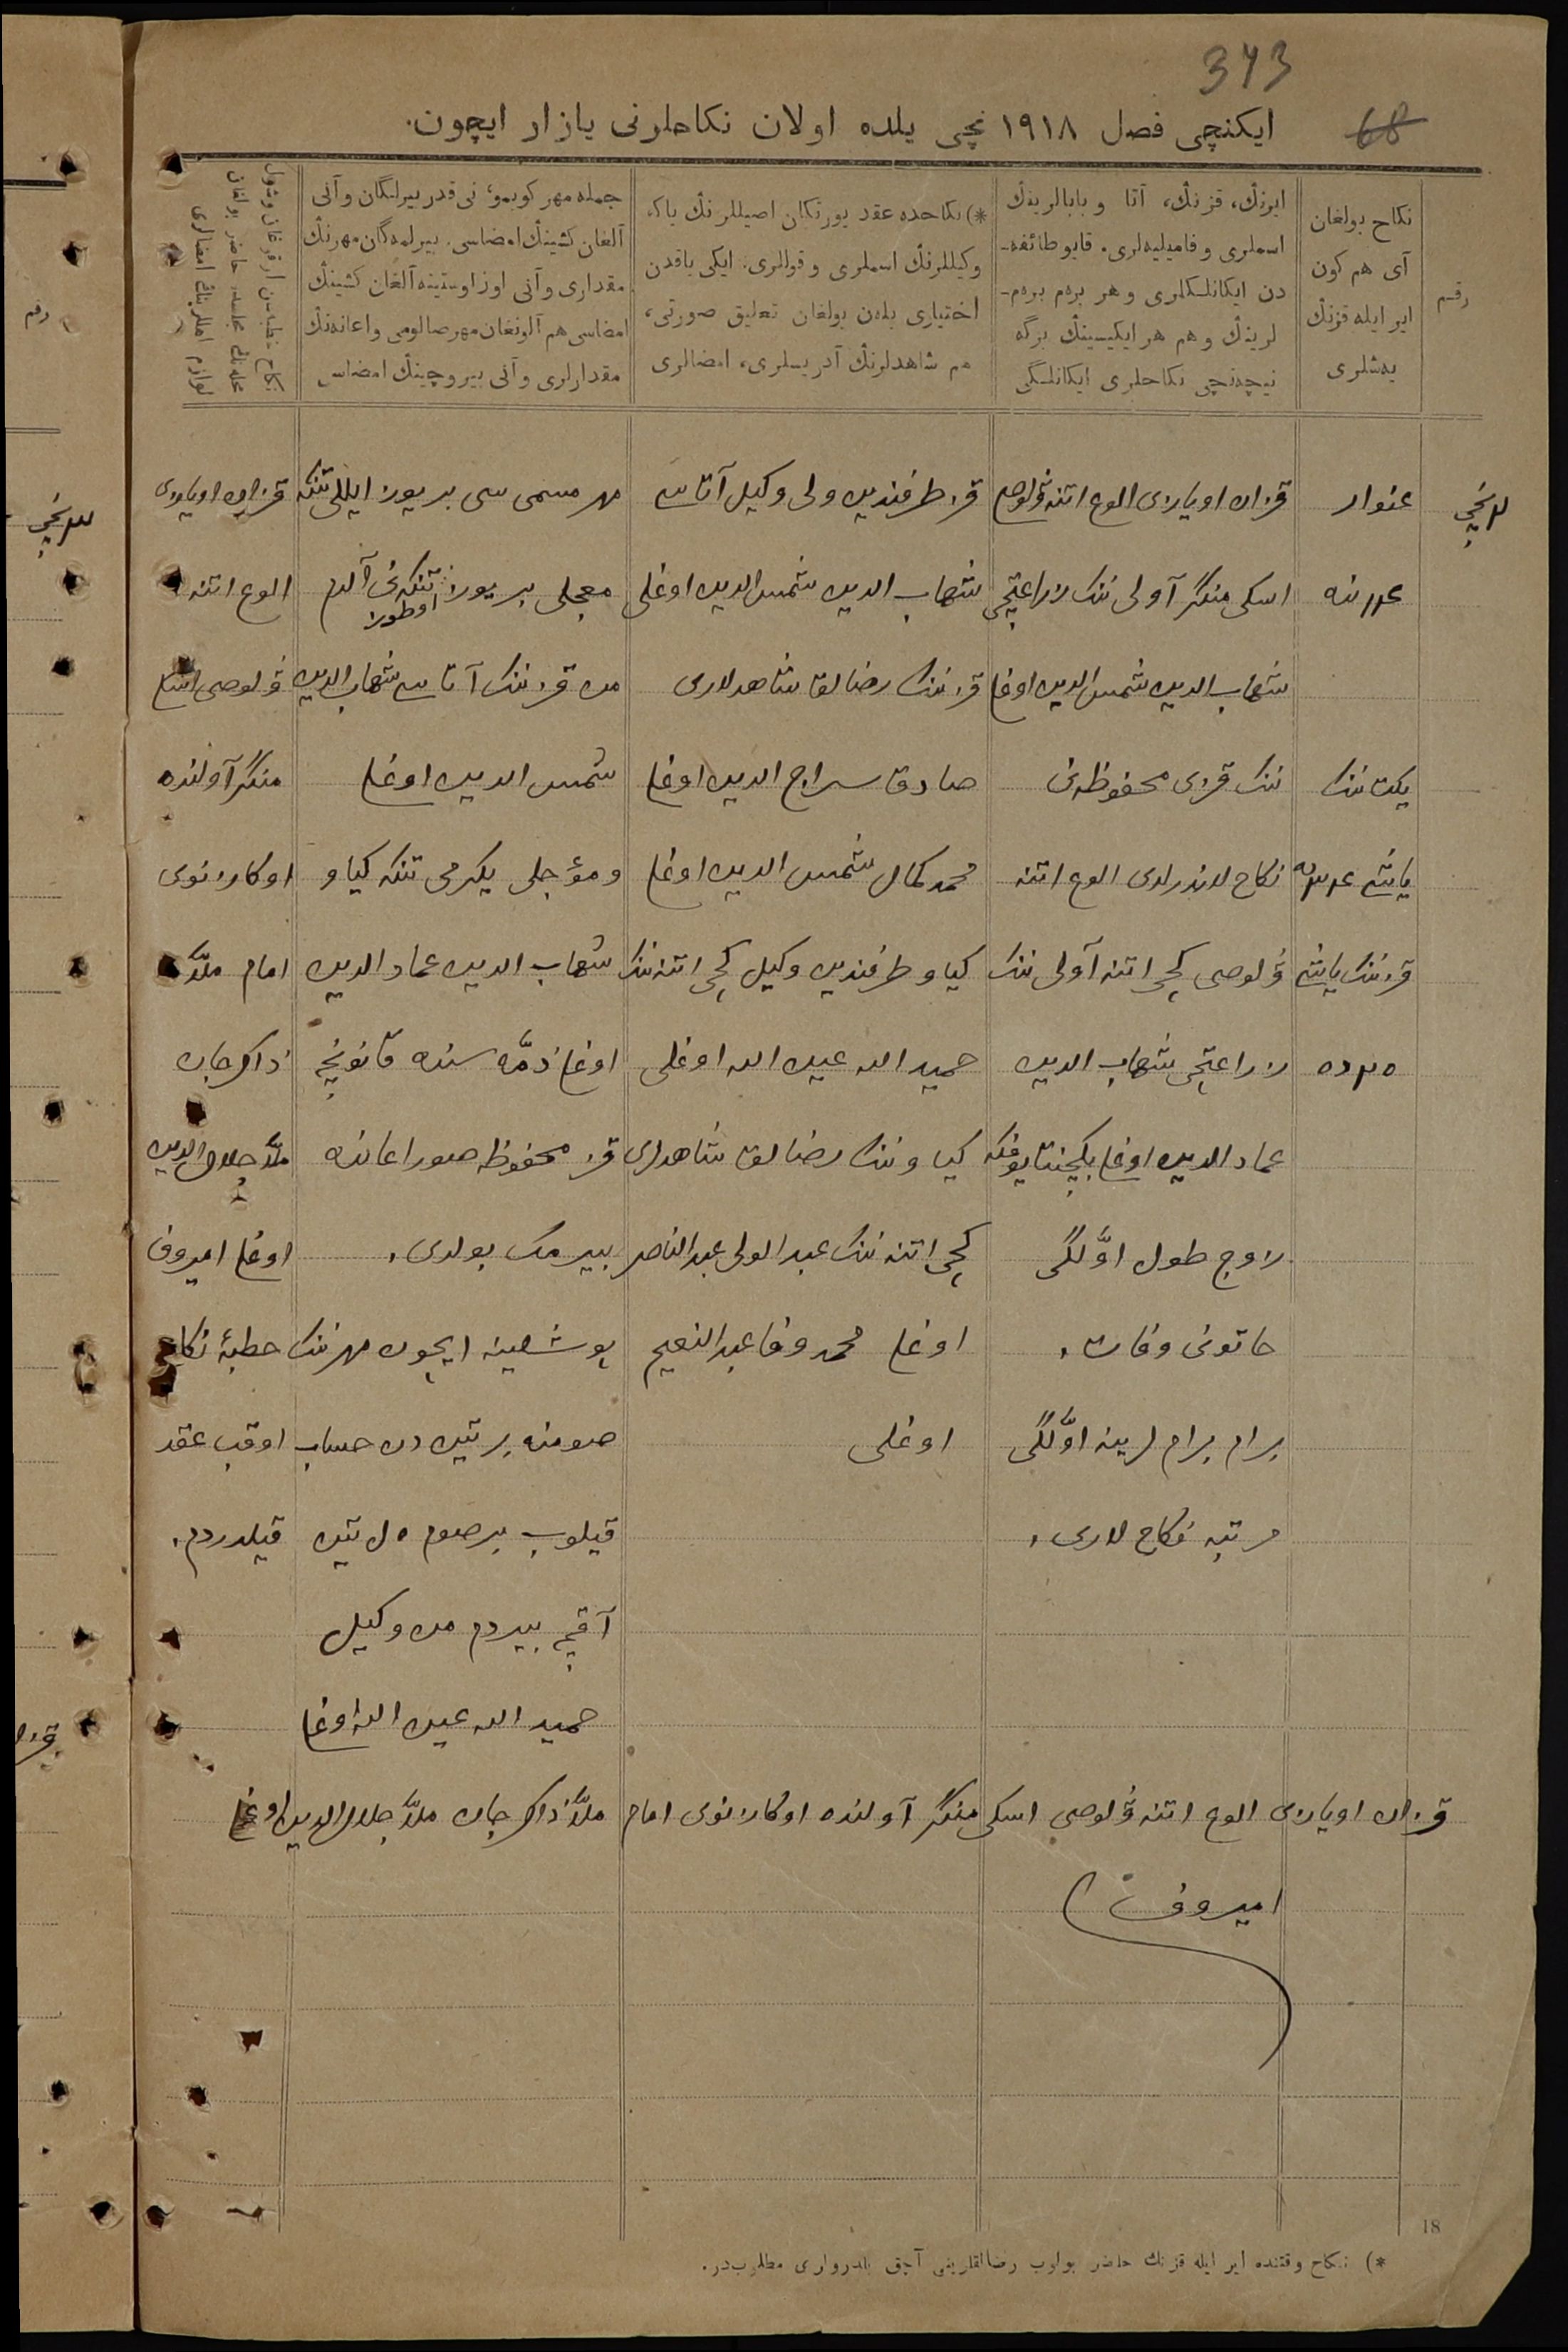 373
68
ایكنچی فصل ١٩١٨ نچی یلده اولان نكاحلرنی یازار ایچون.
رقم
نكاح بولغان
آی هم كون
ایر ایله قزنڭ
یه‌شلری
ایرنڭ، قزنڭ، آتا و بابالرینڭ
اسملری و فامیلیه‌لری. قایو طائفه‌-
دن ایكانلكلری و هر برم برم-
لرینڭ و هم هر ایكیسینڭ برگه
نیچه‌نچی نكاحلری ایكانلگی
*) نكاحده عقد یورتكان اصیللرنڭ یاكه
وكیللرنڭ اسملری و قوللری. ایكی یاقدن
اختیاری بلەن بولغان تعلیق صورتی،
هم شاهدلرنڭ آدریسلری، امضالری
جمله مهر كوبمو؛ نی قدر بیرلگان و آنی
آلغان كشینڭ امضاسی. بیرلمه‌گان مهرنڭ
مقداری و آنی اوز اوستینه آلغان كشینڭ
امضاسی هم آلونغان مهر صالومی و اعانه‌نڭ
مقدارلری و آنی بیروچینڭ امضاسی
٣نچی
غنوار
٢٤نه
یكت ننك
یاشی ٣٤ده
قزننك یاشی
٢٥ده
قزان اویازی الوغ اتنه ڤولوصی
اسكی منگر آولی ننك زراعتچی
شهاب الدین شمس الدین اوغلی
ننك قزی محفوظه‌نی
نكاح لاندرلدی الوغ اتنه
ڤولوصی كچی اتنه آولی ننك
زراعتچی شهاب الدین
عماد الدین اوغلی
زوج طول اوّلگی
خاتونی وفات.
برام برام لرینه اوّلگی
مرتبه نكاح لاری.
قز طرفندین ولی وكیل آتاسی
شهاب الدین شمس الدین اوغلی
قزننك رضالق شاهدلاری
صادق سراج الدین اوغلی
محمد كمال شمس الدین اوغلی
كیاو طرفندین وكیل كچی اتنه ننك
حمید الله عین الله اوغلی
كیاو ننك رضالق شاهدلری
كچی اتنه ننك عبد الولی عبد الناصر
اوغلی محمد وفا عبد النعیم
اوغلی
مهر مسمی سی بر یوز ایللی تنكه
معجلی بر یوز اوطوز تنكه‌نی آلدم
من قزننك آتاسی شهاب الدین
شمس الدین اوغلی
و مؤجلی یكرمی تنكه كیاو
شهاب الدین عماد الدین
اوغلی ذمّه سنده قانونچه
قز محفوظه صوراغانده
بیرمك بولدی.
بو شلینه ایچون مهرننك
صومنه بر تین دن حساب
قیلوب بر صوم ٥٠ تین
آقچه بیردم من وكیل
حمید الله عین الله اوغلی
قزان اویازی
الوغ اتنه
ڤولوصی اسكی
منگر آولنده
اوكازنوی
امام ملّا
ذاكرجان
ملّا جلال الدین
اوغلی امیروف
خطبۀ نكاح
اوقب عقد
قیلدردم.
قزان اویازی الوغ اتنه ڤولوصی اسكی منگر آولنده اوكازنوی امام ملّا ذاكرجان ملّا جلال الدین اوغلی
امیروف
18
*) نكاح وقتنده ایر ایله قزنڭ حاضر بولوب رضالقلرینی آچق بلدرولری مطلوب‌در.
رقم
٣نچی